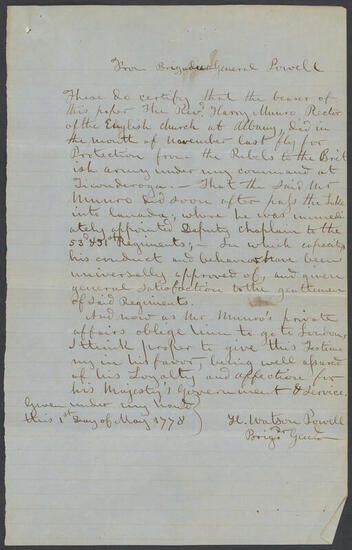 From Brigadier General Powell
These do certify that the bearer of
this paper The Revd Harry Munro Rector
of the English church at Albany, did in
the month of November last fly for
Protection from the Rebels to the Brit
ish army under my command at
Ticonderoga. — That the said Mr
Munro did soon after pass the Lake
into Canada, where he was immedi
ately appointed Deputy chaplain to the
53d & 31st Regiments; — In which capacity
his conduct and behavior have been
universally approved of, and given
general satisfaction to the gentlemen
of said Regiments.
And now as Mr Munro's private
affairs oblige him to go to London,
I think proper to give this Testimo
ny in his favor, being well assured
of his Loyalty and affection for
his Majesty's Government & Service.
Given under my hand
this 1st Day of May 1778
H. Watson Powell
Brigdr Genrl